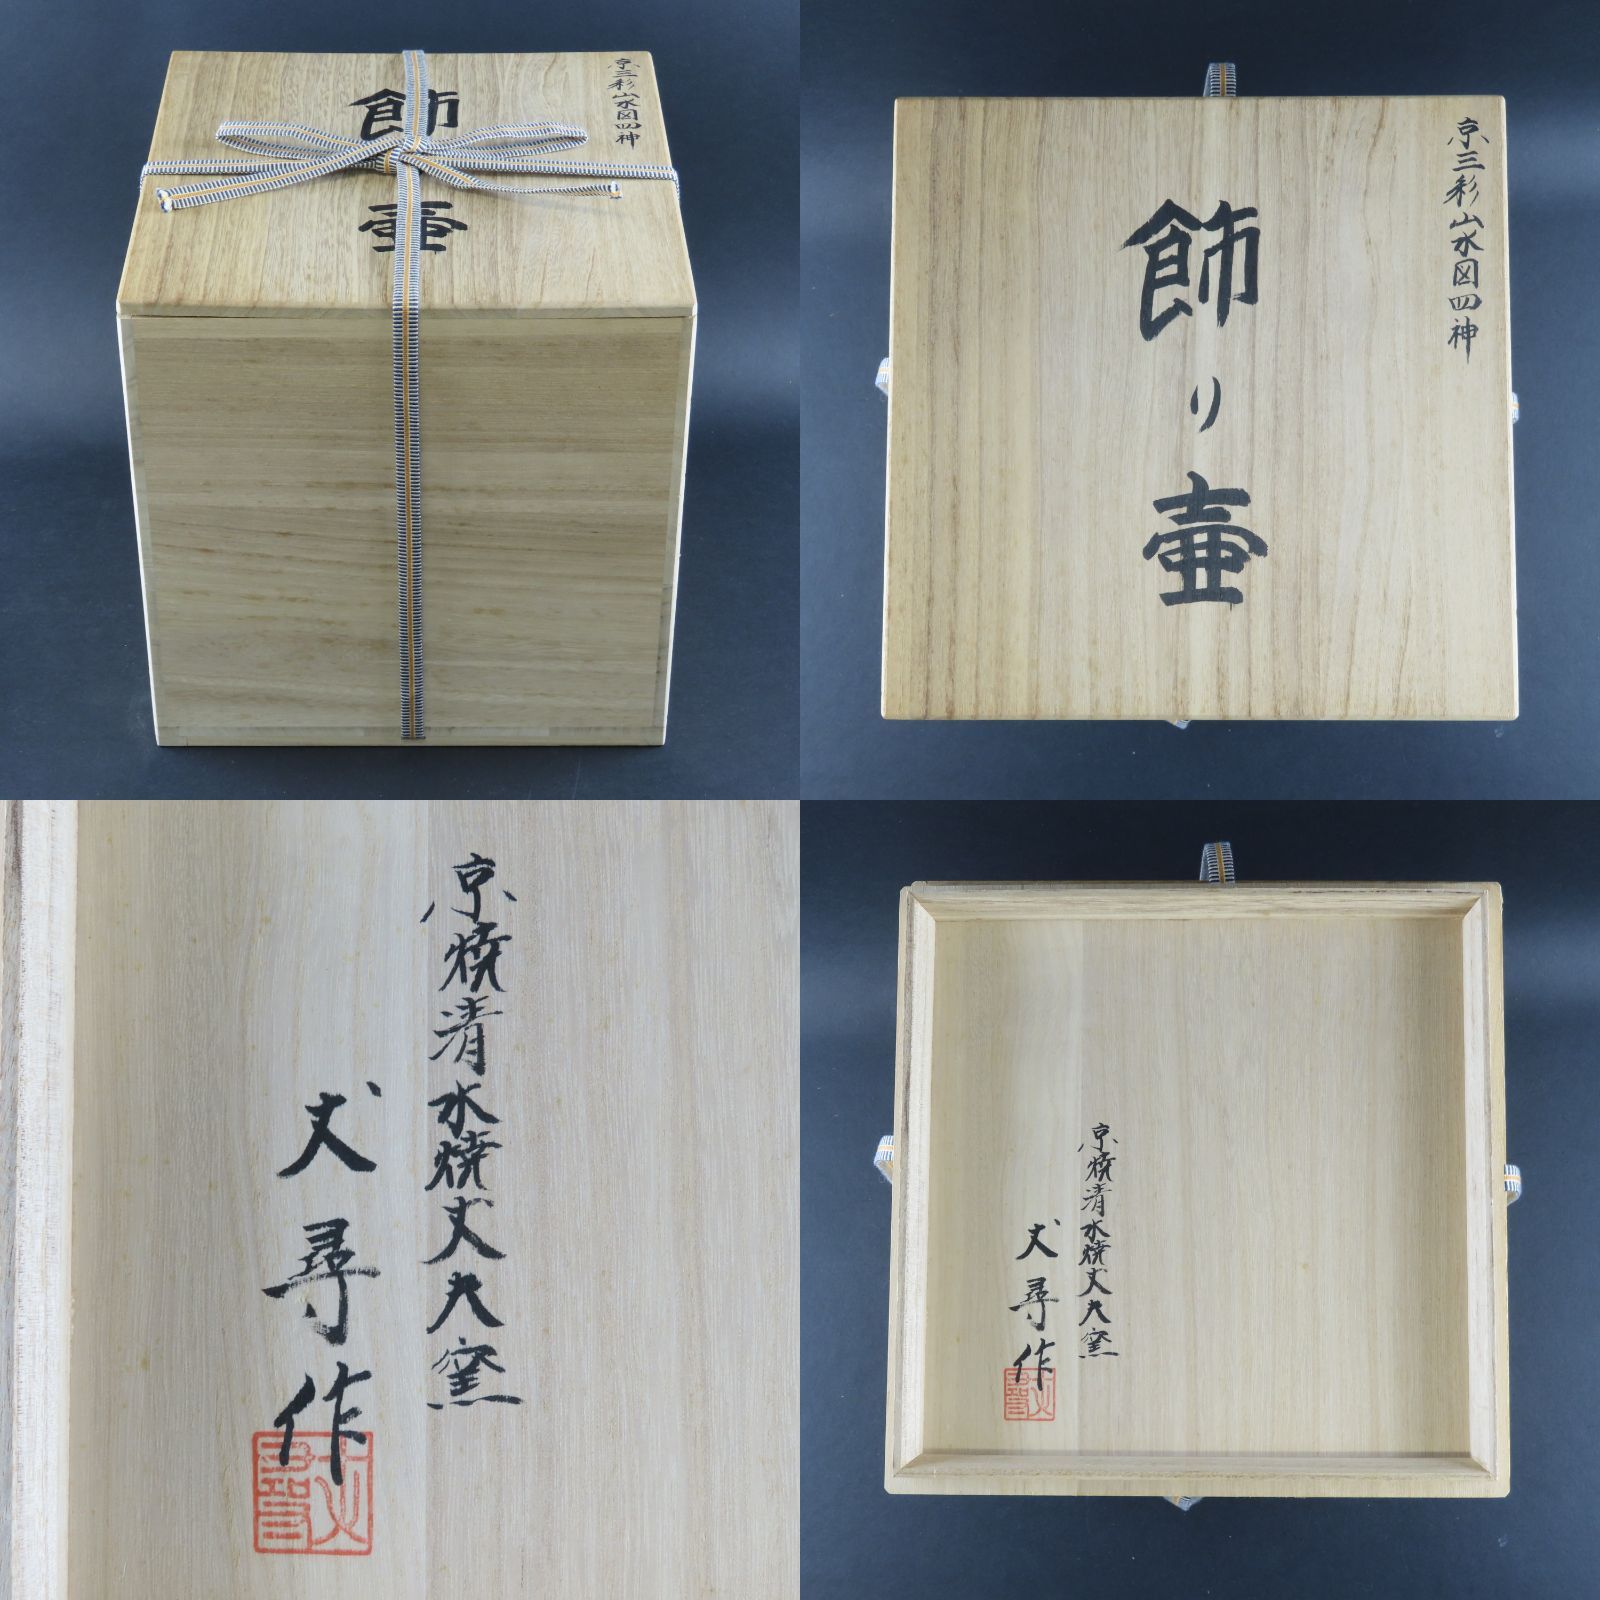 京三彩山水図四神
飾
壷
京三彩山水図四神
飾り壷
京焼清水焼丈夫窯
丈尋作
京焼清水焼丈夫窯
丈尋作